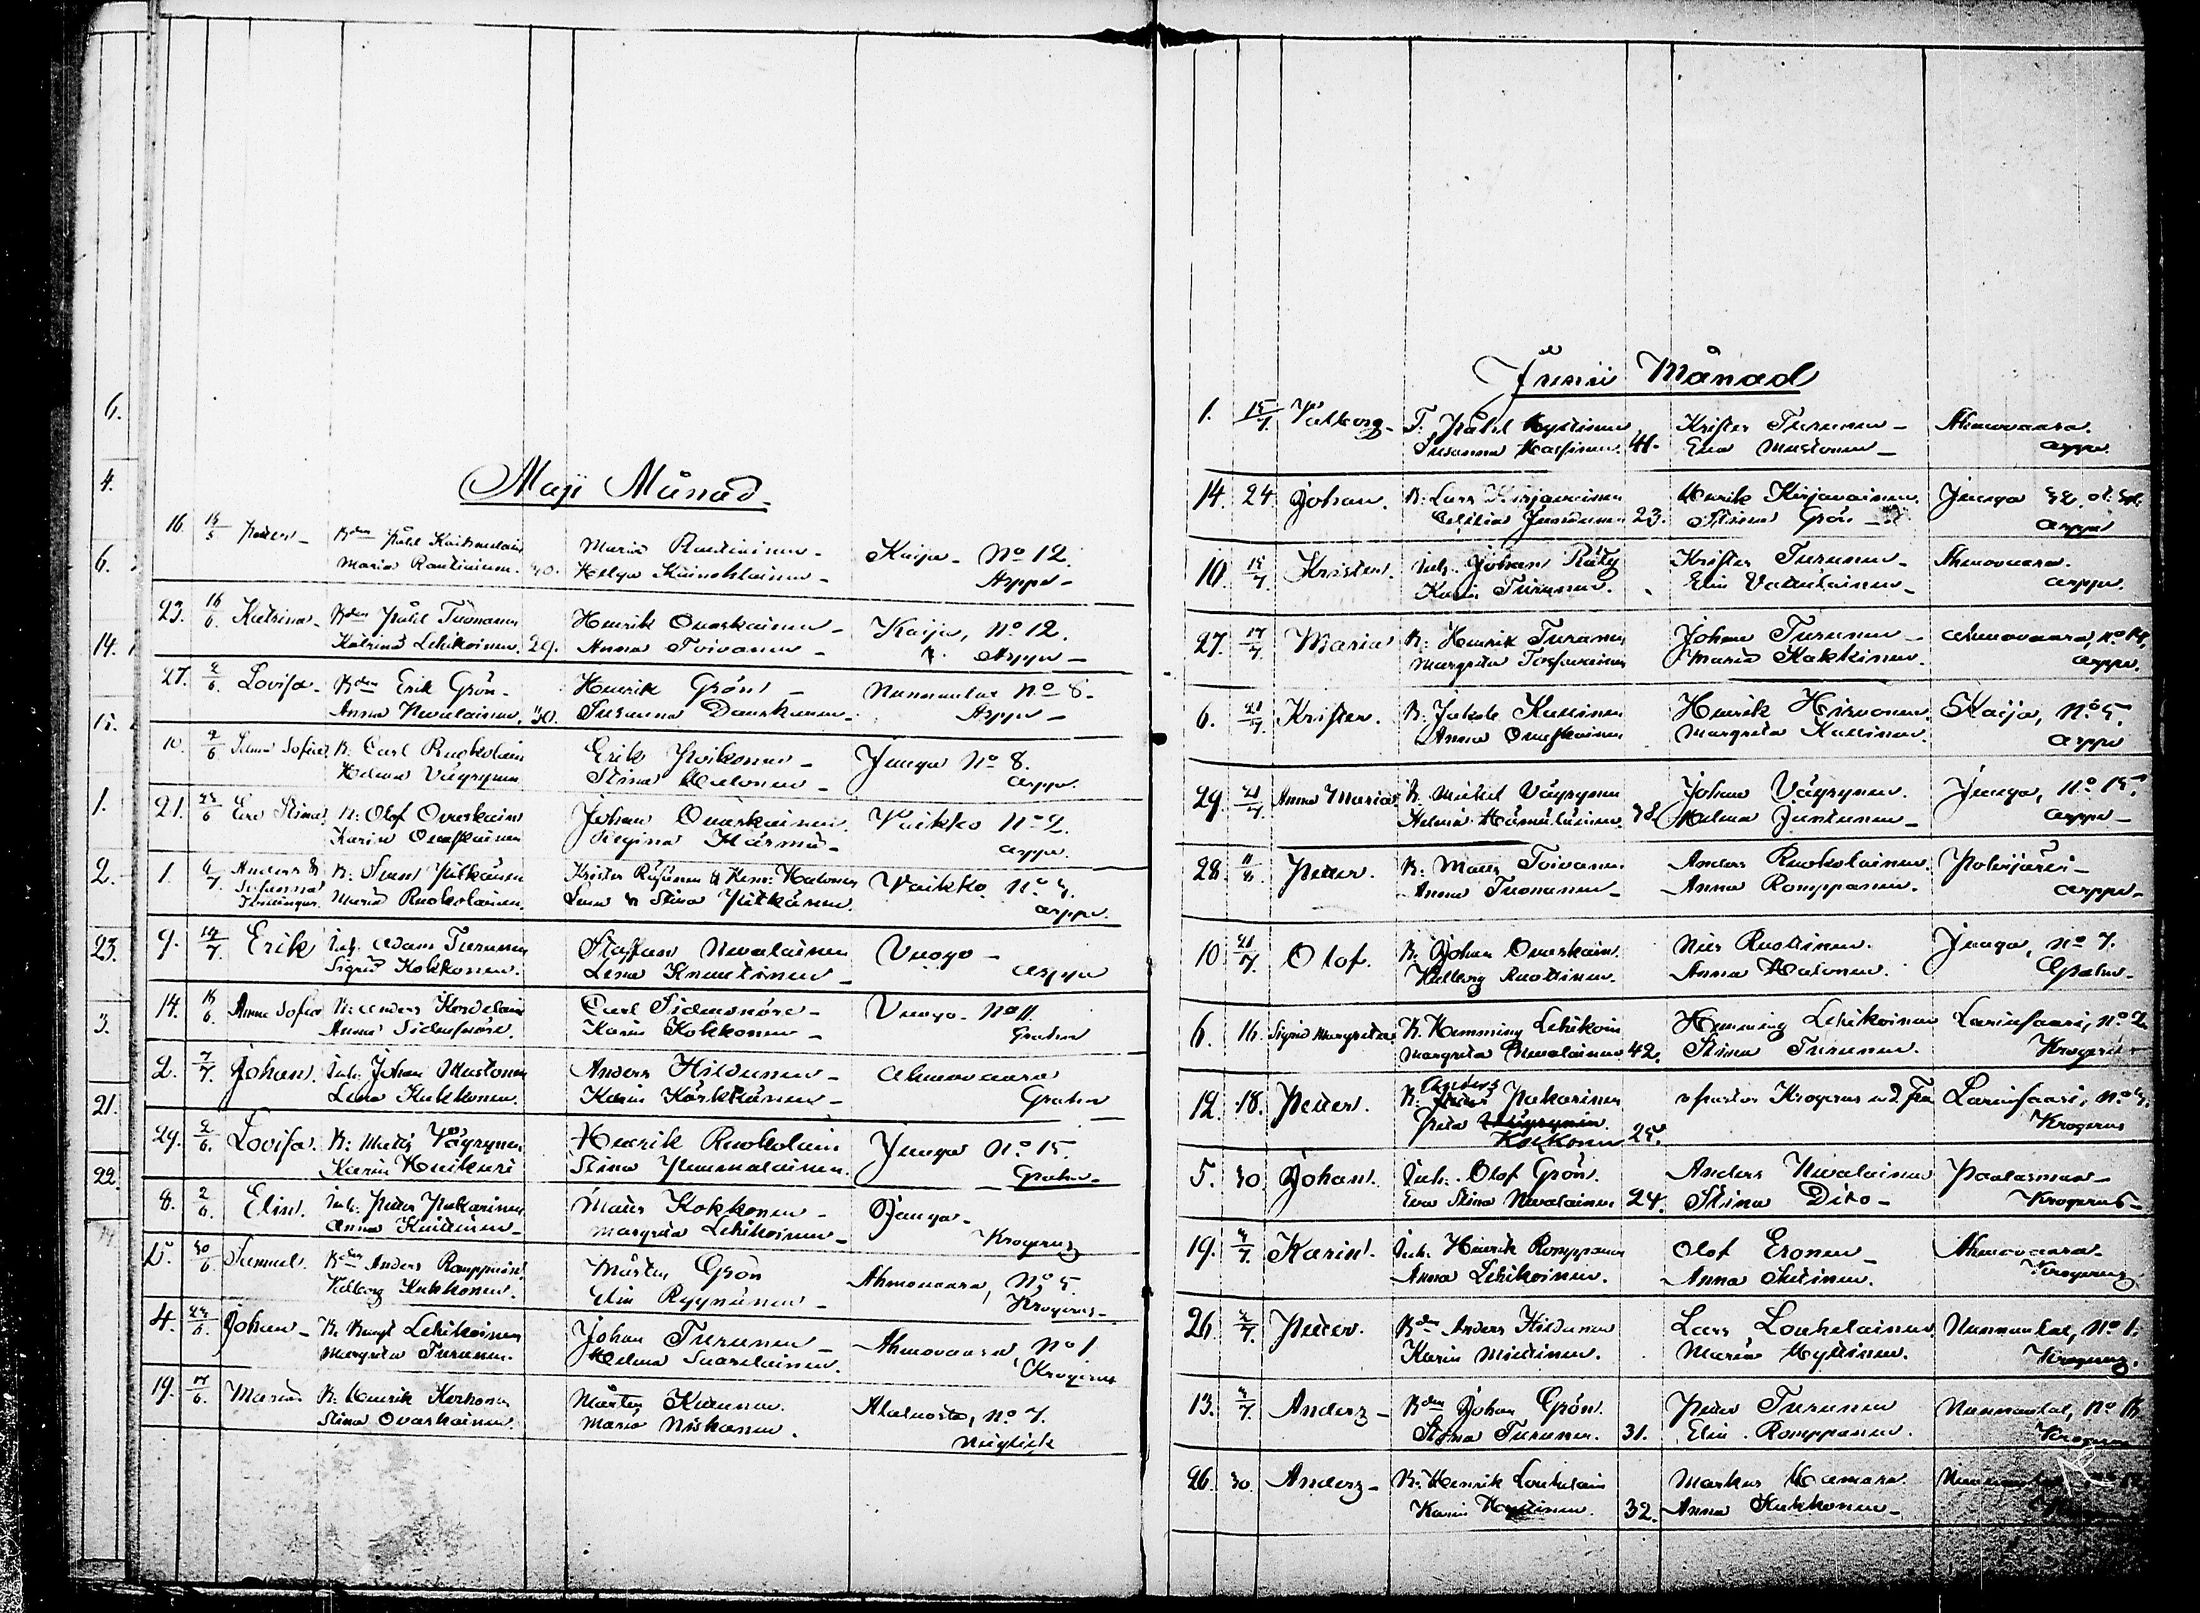 6.
4.
6.
14.
15.
1.
2.
23.
3.
21.
22.
Maji Månad.
16. 14/5 Petter - Bden Påhl
Maria Rautiainen. 30.
Maria Rautiainen -
Helga Käinöhläinen -
Kaija - No 12.
Arppe -
23. 16/6. Katrina - Bden Påhl Tuonanen
Katrina Lehikoinen. 29.
Henrik Overskainen -
Anna Toivanen -
Kaija, No 12.
Arppe -
27. 2/6. Lovisa - Bden Erik Grön -
Anna Nevalainen. 30.
Henrik Grön -
Susanna Danskanen -
Nunnanlax No 8 -
Arppe -
10. 2/6 Sofia B. Carl Ruokolain
Helena Väyrynen
Erik Poikonen -
Stina Halonen -
Juuga No 8.
Arppe.
21. 24/6 Eva Stina B: Olof Overskain
Karin Ovaskainen
Johan Overskainen.
Regina Härmä -
Vaikko No 2.
Arppe.
1. 6/7 Anders &
Susanna
Tvillingar.
B. Sven Pitkänen
Maria Ruokolainen.
Krister Räsänen & Halonen
Lena & Stina Pitkänen.
Vaikko No 4.
Arppe.
9. 14/7. Erik Inh. Adam Turunen
Sigrid Kokkonen.
Staffan Nevalainen
Lena Knuutinen -
Vuogo -
Arppe
14. 16/6. Anna Sofia B: Anders
Anna Sidensnöre.
Carl Sidensnöre -
Karin Kokkonen -
Vuogo - No 11.
Grahn
2. 7/7. Johan. Inh. Johan Mustonen
Lena Kukkonen.
Anders Hiltunen -
Karin Kärkkäinen -
Ahmovaara
Grahn
29. 2/6. Lovisa. B: Matts Väyrynen
Karin Huikuri
Henrik Ruokolain
Stina Pummalainen.
Juuga No 15.
Grahn -
8. 2/6 Elin. Inh. Petter Pakarinen
Anna Kuittinen -
Matts Kokkonen -
Margreta Lehikoinen -
Juuga -
Krogerus
15. 30/6 Samuel. Bden Anders Romppain
Kukkonen.
Mårten Grön
Elin Ryynänen -
Ahmovaara, No 5.
Krogerus -
4. 24/6. Johan - B. Bengt Lehikoinen
Margreta Turunen.
Johan Turunen -
Helena Saarelainen.
Ahmovaara, No 1
Krogerus
19. 17/6. Maria B. Henrik Korhonen
Stina Ovaskainen.
Mårten Kuronen
Maria Niskanen.
Alaluosta, No 7.
Neiglick
Junii Månad
1. 15/7. Valborg - T. Påhl Hyttinen
Susanna Hassinen. 41.
Krister Turunen -
Eva Mustonen -
Ahmovaara.
Arppe.
14. 24 Johan. B: Lars Kirjavainen
Cecilia Juntunen 23.
Henrik Kirjavainen.
Stina Grön -
Juuga
Arppe
10. 15/7. Krister. Inh. Johan Räty
Karin Turunen.
Krister Turunen -
Elin Vatulainen -
Ahmovaara.
Arppe.
27. 17/7. Maria B: Henrik Turunen
Margreta Torsvainen
Johan Turunen -
Maria Kakkinen.
Ahmovaara, No 14,
Arppe.
6. 21/7. Krister. B. Jakob Kallinen
Anna Ovaskainen
Henrik Hirvonen.
Margreta Kallinen.
Kaija, No 5.
Arppe
29. 21/7. Anna Maria B. Mikkel Väyrynen
Helena Hämäläinen. 38
Johan Väyrynen.
Helena Juntunen -
Juuga, No 15.
Arppe -
28. 11/8. Petter. B. Matts Toivanen
Anna Tuonanen -
Anders Ruokolainen.
Anna Romppanen.
Polvijärvi -
Arppe -
10 21/7. Olof. B. Johan Overskain.
Valborg Ruottinen.
Nils Ruottinen.
Anna Halonen.
Juuga, No 7.
Grahn -
6. 16. Sigrid Margreta B. Hemming Lehikoin
Margreta Nevalainen 42.
Hemming Lehikoinen
Stina Turunen.
Larinsaari, No 2.
Krogerus -
12. 18. Petter. B. Anders Pakarinen
Kokkonen 25.
Pastor Krogerus
Larinsaari, No 4.
Krogerus
5. 30. Johan. Inh. Olof Grön.
Eva Stina Nevalainen 24.
Anders Nevalainen
Stina Dito -
Paalasmaa -
Krogerus -
19. 4/7. Karin. Inh. Henrik Romppanen
Anna Lehikoinen.
Olof Eronen -
Anna Sutinen.
Ahmovaara -
Krogerus
26. 2/7. Petter. Bden Anders Hiltunen
Karin Miettinen.
Lars Loukelainen.
Maria Hyttinen.
Nunnanlax, No 1.
Krogerus.
13. 4/7. Anders - Bden Johan Grön.
Stina Turunen. 31.
Petter Turunen
Elin Romppanen.
Nunnanlax, No 18.
Krogerus
26. 30. Anders - B. Henrik Loukelain
Karin Hyttinen. 32.
Markus
Anna Kukkonen -